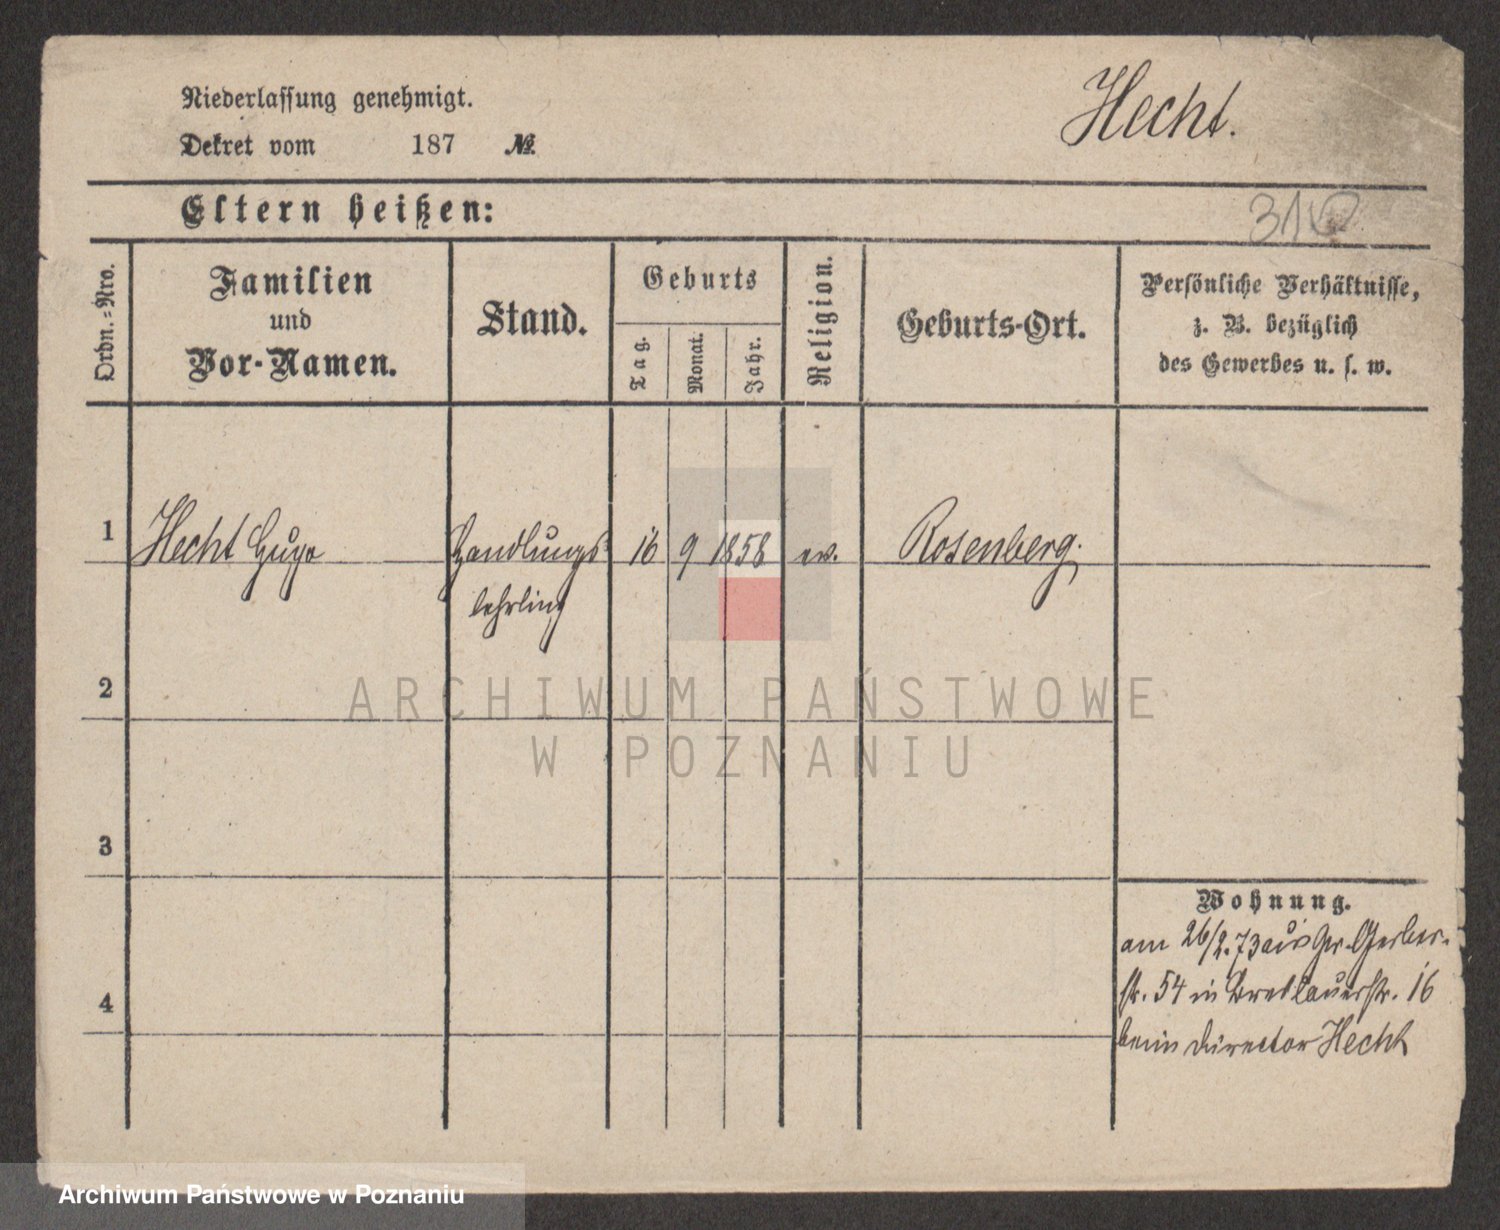 Niederlassung genehmigt.
Hecht.
Dekret vom 187 №
Eltern heißen:
Ordn.=Nro.
Familien
und
Vor-Namen.
Stand.
Geburts
Tag.
Monat.
Jahr.
Religion.
Geburts-Ort.
Persönliche Verhältnisse,
z. B. bezüglich
des Gewerbes u. s. w.
1 Hecht Hugo Handlungs- 16 9 1858 ev. Rosenberg.
lehrling
2
ARCHIWUM PAŃSTWOWE
W POZNANIU
3
Wohnung.
am 26/2.73 aus Gr. Gerber-
str. 54 in Breslauerstr. 16
4
beim Director Hecht
Archiwum Państwowe w Poznaniu